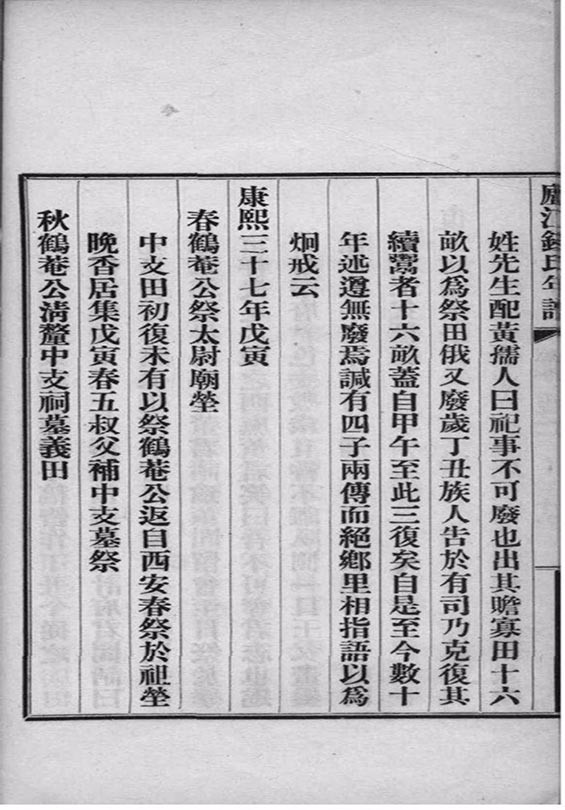 廬江錢氏年譜
姓先生配黃孺人曰祀事不可廢也出其贍寡田十六
畝以爲祭田俄又廢歲丁丑族人告於有司乃克復其
續鬻者十六畝蓋自甲午至此三復矣自是至今數十
年述遵無廢焉諴有四子兩傳而絕鄉里相指語以爲
炯戒云
康熙三十七年戊寅
春鶴菴公祭太尉廟塋
中支田初復未有以祭鶴菴公返自西安春祭於祖塋
晚香居集戊寅春五叔父補中支墓祭
秋鶴菴公清釐中支祠墓義田